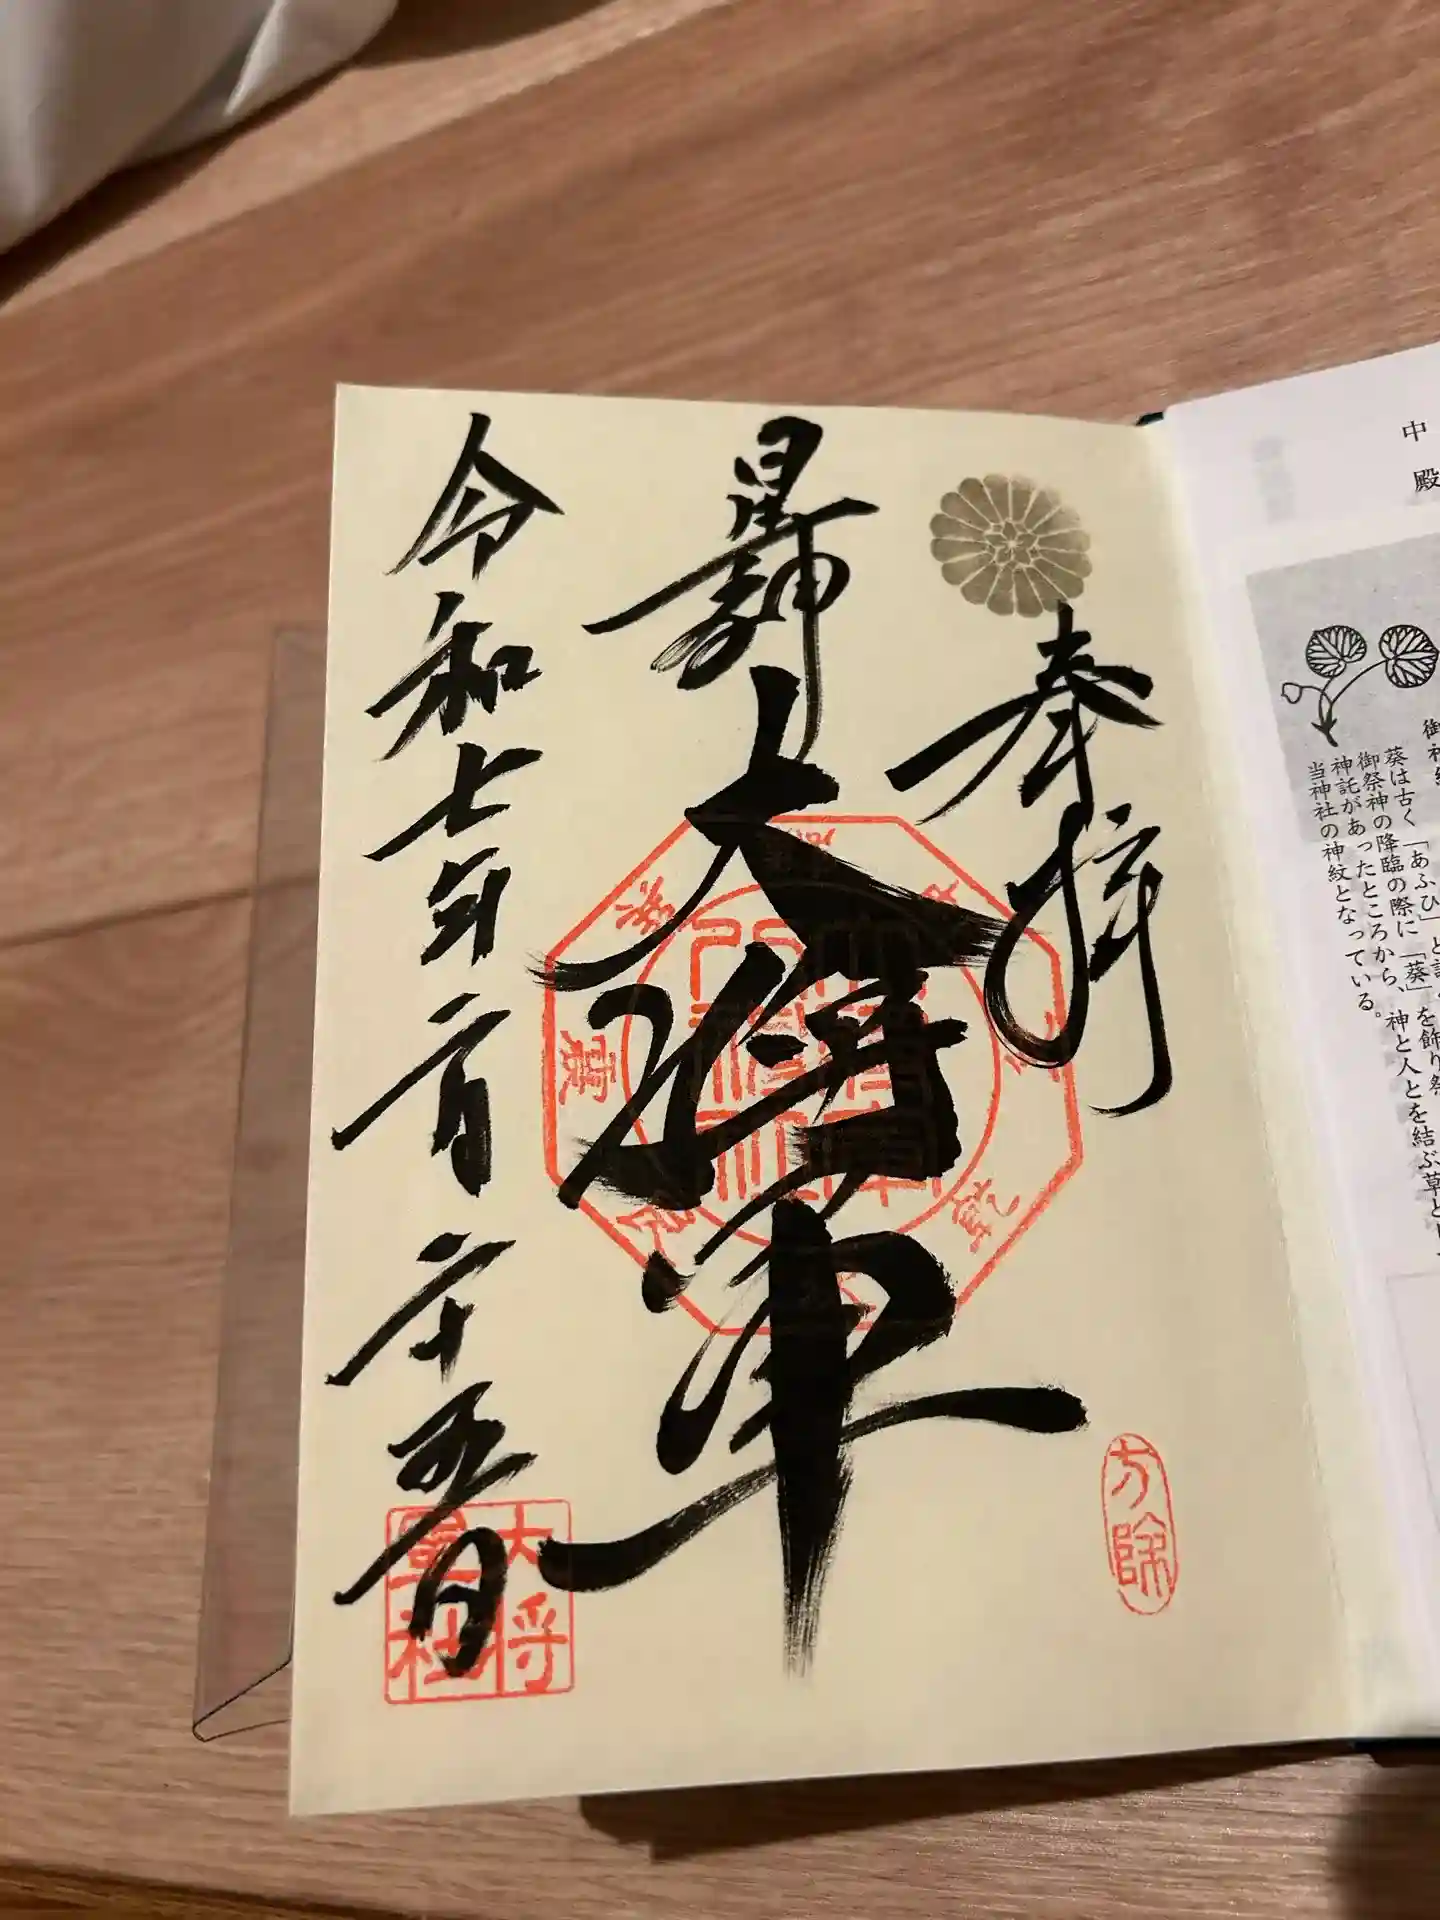 中
殿
葵は古く「あふひ」と
御祭神の降臨の際に「葵」を飾り祭
神託があったところから、神と人とを結ぶ草とし
当神社の神紋となっている。
奉拝
方除
星神
大将軍
大将
軍社
令和七年二月二十五日